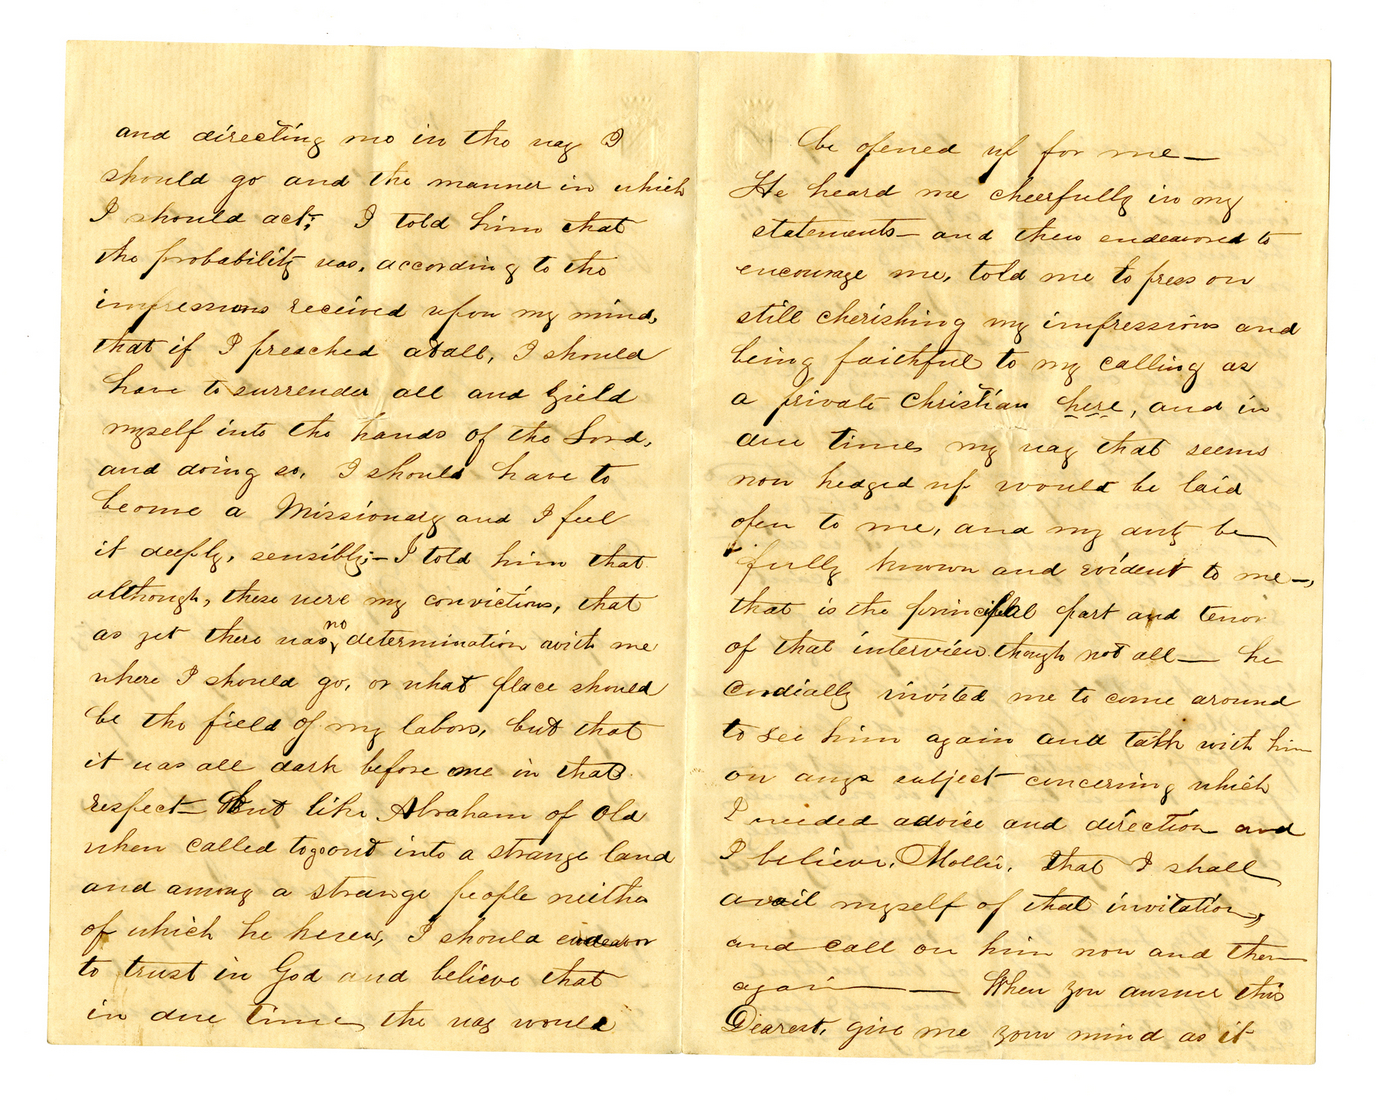 and directing me in the way I
should go and the manner in which
I should act; I told him that
the probability was, according to the
impressions received upon my mind,
that if I preached atall, I should
have to surrender all and yield
myself into the hands of the Lord,
and doing so, I should have to
become a Missionary and I feel
it deeply, sensibly;— I told him that
although, these were my convictions, that
as yet there was no determination with me
where I should go, or what place should
be the field of my labors, but that
it was all dark before me in that
respect— But like Abraham of Old
when called to go out into a strange land
and among a strange people neither
of which he knew, I should endeavor
to trust in God and believe that
in due time the way would
be opened up for me—
He heard me cheerfully in my
statements— and then endeavored to
encourage me, told me to press on
still cherishing my impressions and
being faithful to my calling as
a private Christian here, and in
due time, my way that seems
now hedged up would be laid
open to me, and my duty be
fully known and evident to me—,
that is the principal part and tenor
of that interview though not all— he
cordially invited me to come around
to see him again and talk with him
on any subject concerning which
I needed advice and direction and
I believe, Mollie, that I shall
avail myself of that invitation,
and call on him now and then
again—— When you answer this
Dearest, give me your mind as it